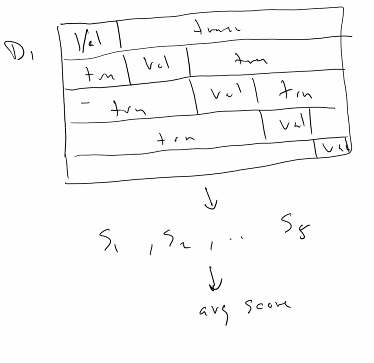 Val train
D1 trn val trn
- trn val trn
trn val
val
S1 , S2 , .. S5
avg score